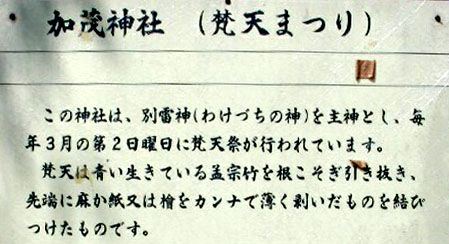 加茂神社 (梵天まつり)
この神社は、別雷神(わけづちの神)を主神とし、毎
年3月の第2日曜日に梵天祭が行われています。
梵天は青い生きている孟宗竹を根こそぎ引き抜き、
先端に麻か紙又は檜をカンナで薄く剥いだものを結び
つけたものです。